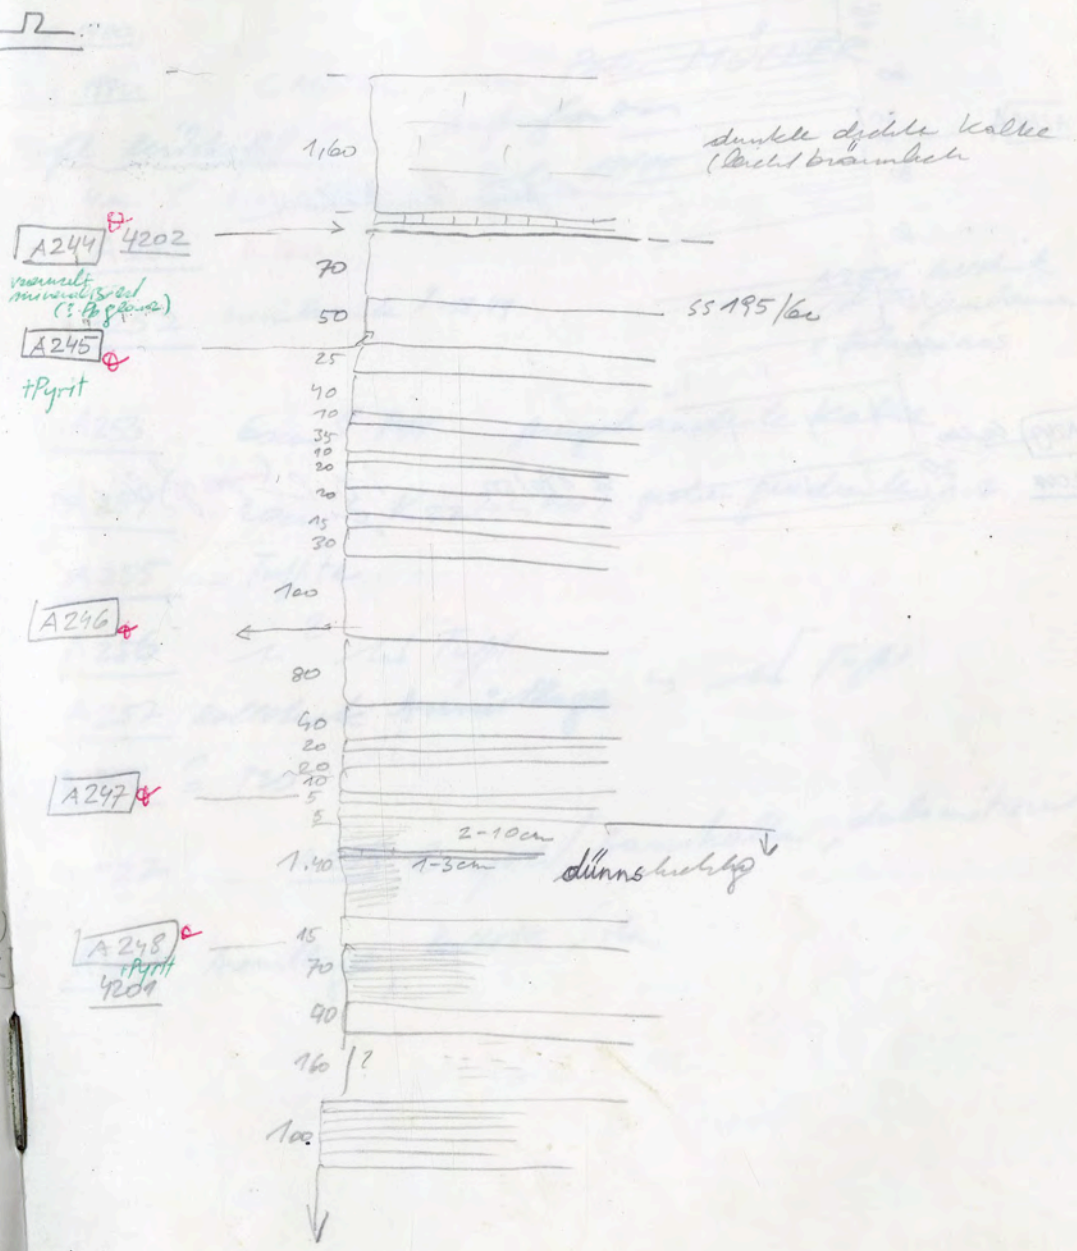 1,60
dunkle dichte Kalke
(leicht bräunlich
A244 4202
vererzt
mineralisiert
(? Pbglanz)
70
50
SS 195/60
A245
+Pyrit
25
40
10
35
10
20
20
15
30
100
A246
80
40
20
20
10
A247
5
5
2-10cm
1.40
1-3cm
dünnschichtig
A248
+Pyrit
4201
15
70
90
160 ?
100